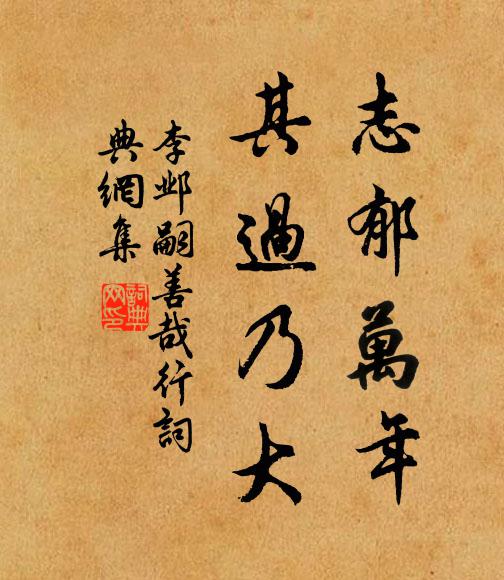 志郁萬年
其過乃大
李邺嗣善哉行詞
典網集
詞典
网印